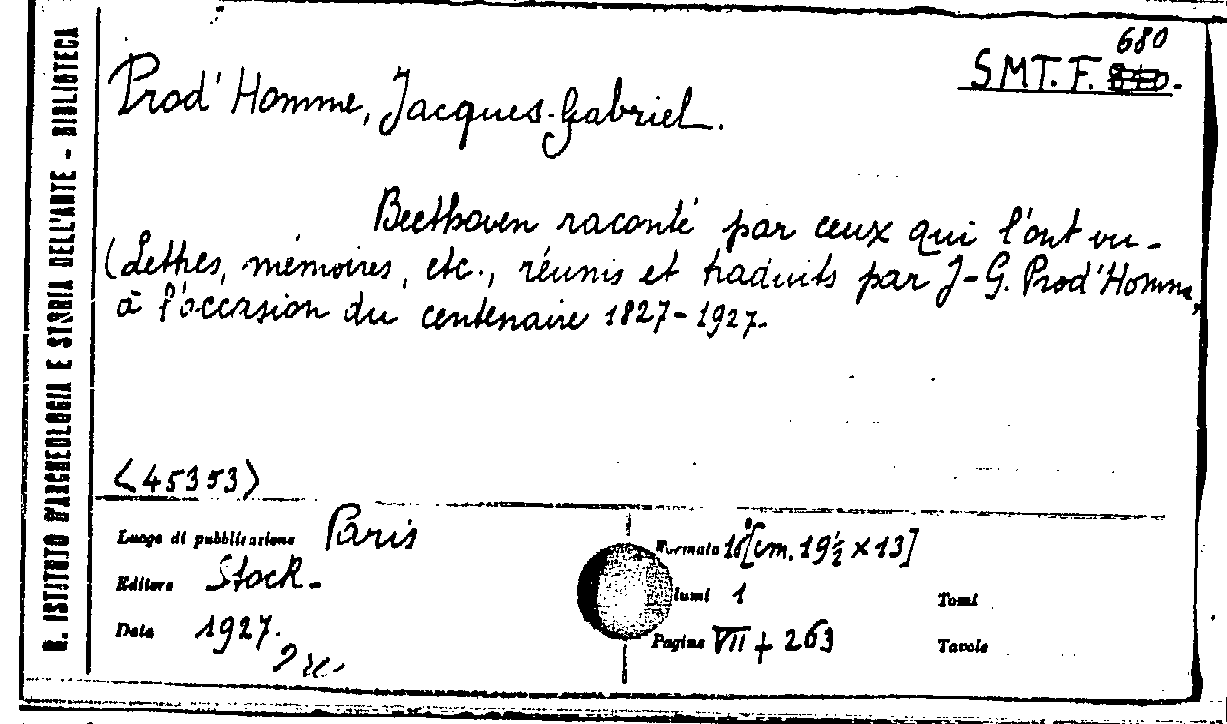 R. ISTITUTO D'ARCHEOLOGIA E STORIA DELL'ARTE - BIBLIOTECA
680
SMT. F.
Prod'Homme, Jacques-Gabriel.
Beethoven raconté par ceux qui l'ont vu-
(Lettres, mémoires, etc., réunis et traduits par J-G. Prod'Homme,
à l'occasion du centenaire 1827-1927.
<45353>
Luogo di pubblicazione Paris
Formato 16°[cm. 19½ x 13]
Editore Stock-
lumi 1
Tomi
Data 1927.
Pagine VII + 263
Tavole